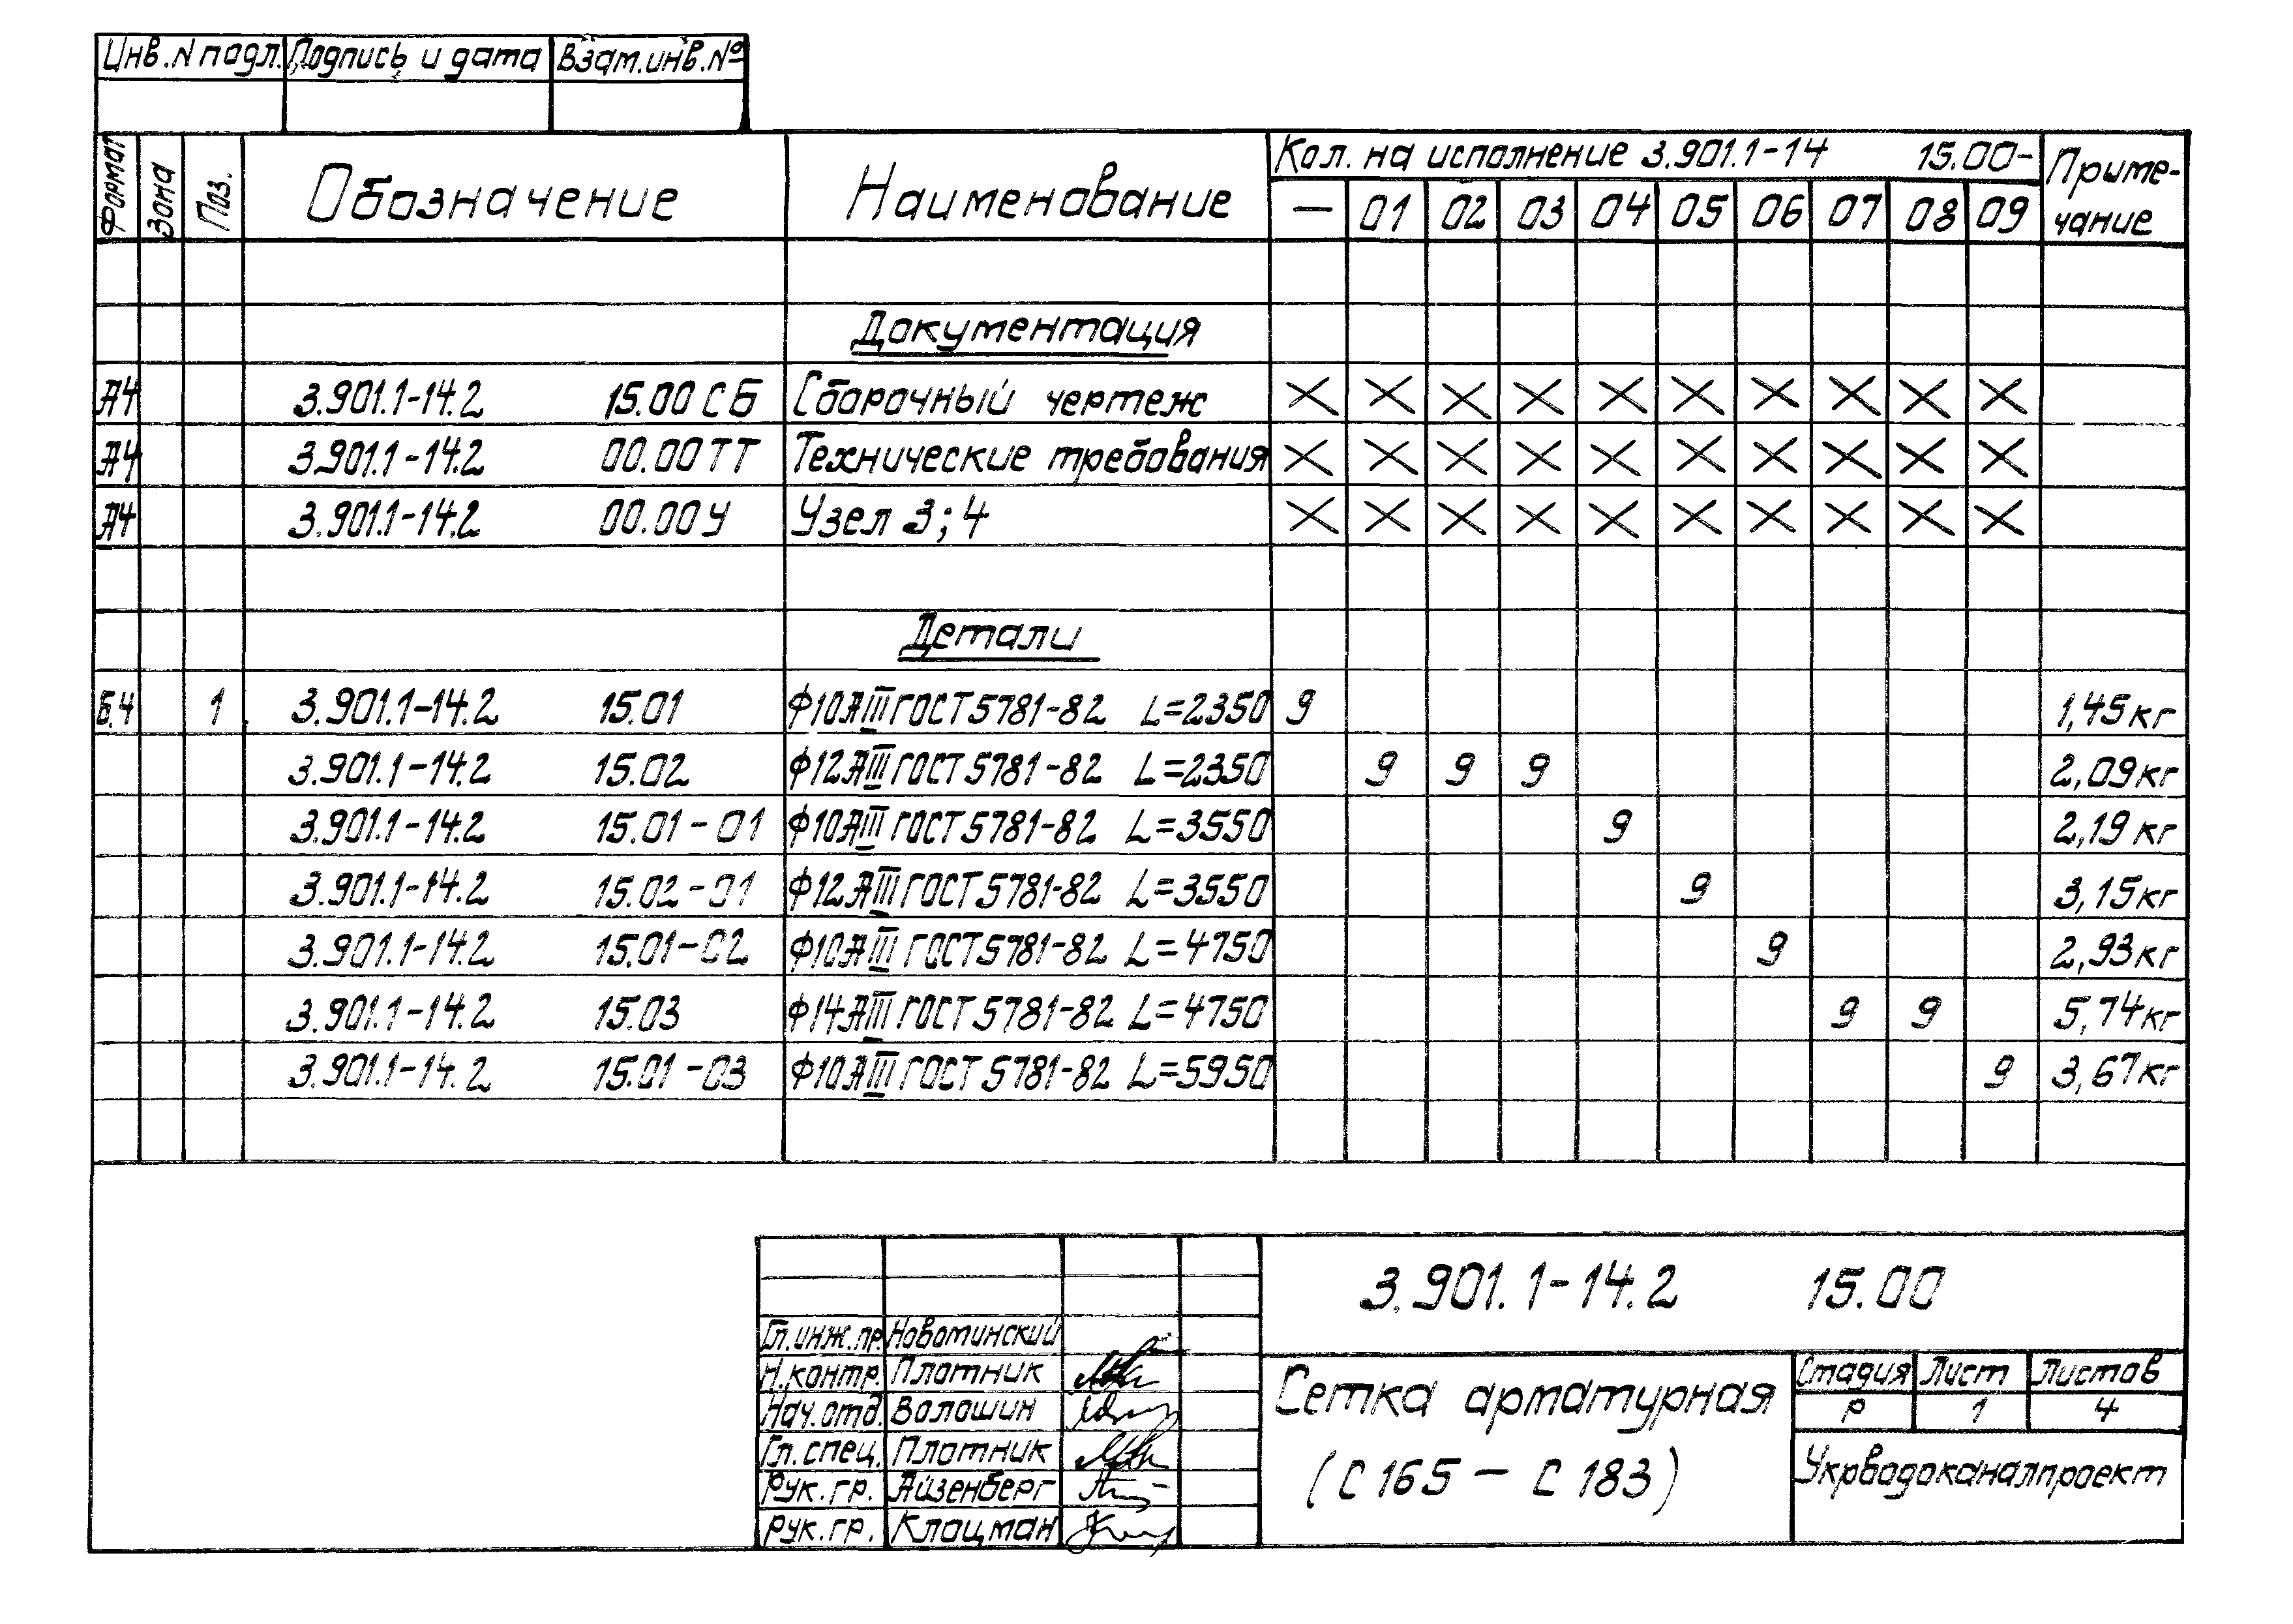 Инв.N подл. Подпись и дата Взам.инв.№
Формат Зона Поз. Обозначение Наименование Кол. на исполнение 3.901.1-14 15.00- Примечание
— 01 02 03 04 05 06 07 08 09
Документация
А4 3.901.1-14.2 15.00 СБ Сборочный чертеж X X X X X X X X X X
А4 3.901.1-14.2 00.00 ТТ Технические требования X X X X X X X X X X
А4 3.901.1-14.2 00.00 У Узел 3; 4 X X X X X X X X X X
Детали
Б.4 1 3.901.1-14.2 15.01 Ф10АIII ГОСТ 5781-82 L=2350 9 1,45кг
3.901.1-14.2 15.02 Ф12АIII ГОСТ 5781-82 L=2350 9 9 9 2,09кг
3.901.1-14.2 15.01-01 Ф10АIII ГОСТ 5781-82 L=3550 9 2,19 кг
3.901.1-14.2 15.02-01 Ф12АIII ГОСТ 5781-82 L=3550 9 3,15кг
3.901.1-14.2 15.01-02 Ф10АIII ГОСТ 5781-82 L=4750 9 2,93кг
3.901.1-14.2 15.03 Ф14АIII ГОСТ 5781-82 L=4750 9 9 5,74кг
3.901.1-14.2 15.01-03 Ф10АIII ГОСТ 5781-82 L=5950 9 3,67кг
3.901.1-14.2 15.00
Гл.инж.пр. Новоминский
Н.контр. Плотник
Нач.отд. Волошин
Гл.спец. Плотник
Рук.гр. Айзенберг
Рук.гр. Клоцман
Сетка арматурная
(С 165 — С 183)
Стадия Лист Листов
Р 1 4
Укрводоканалпроект